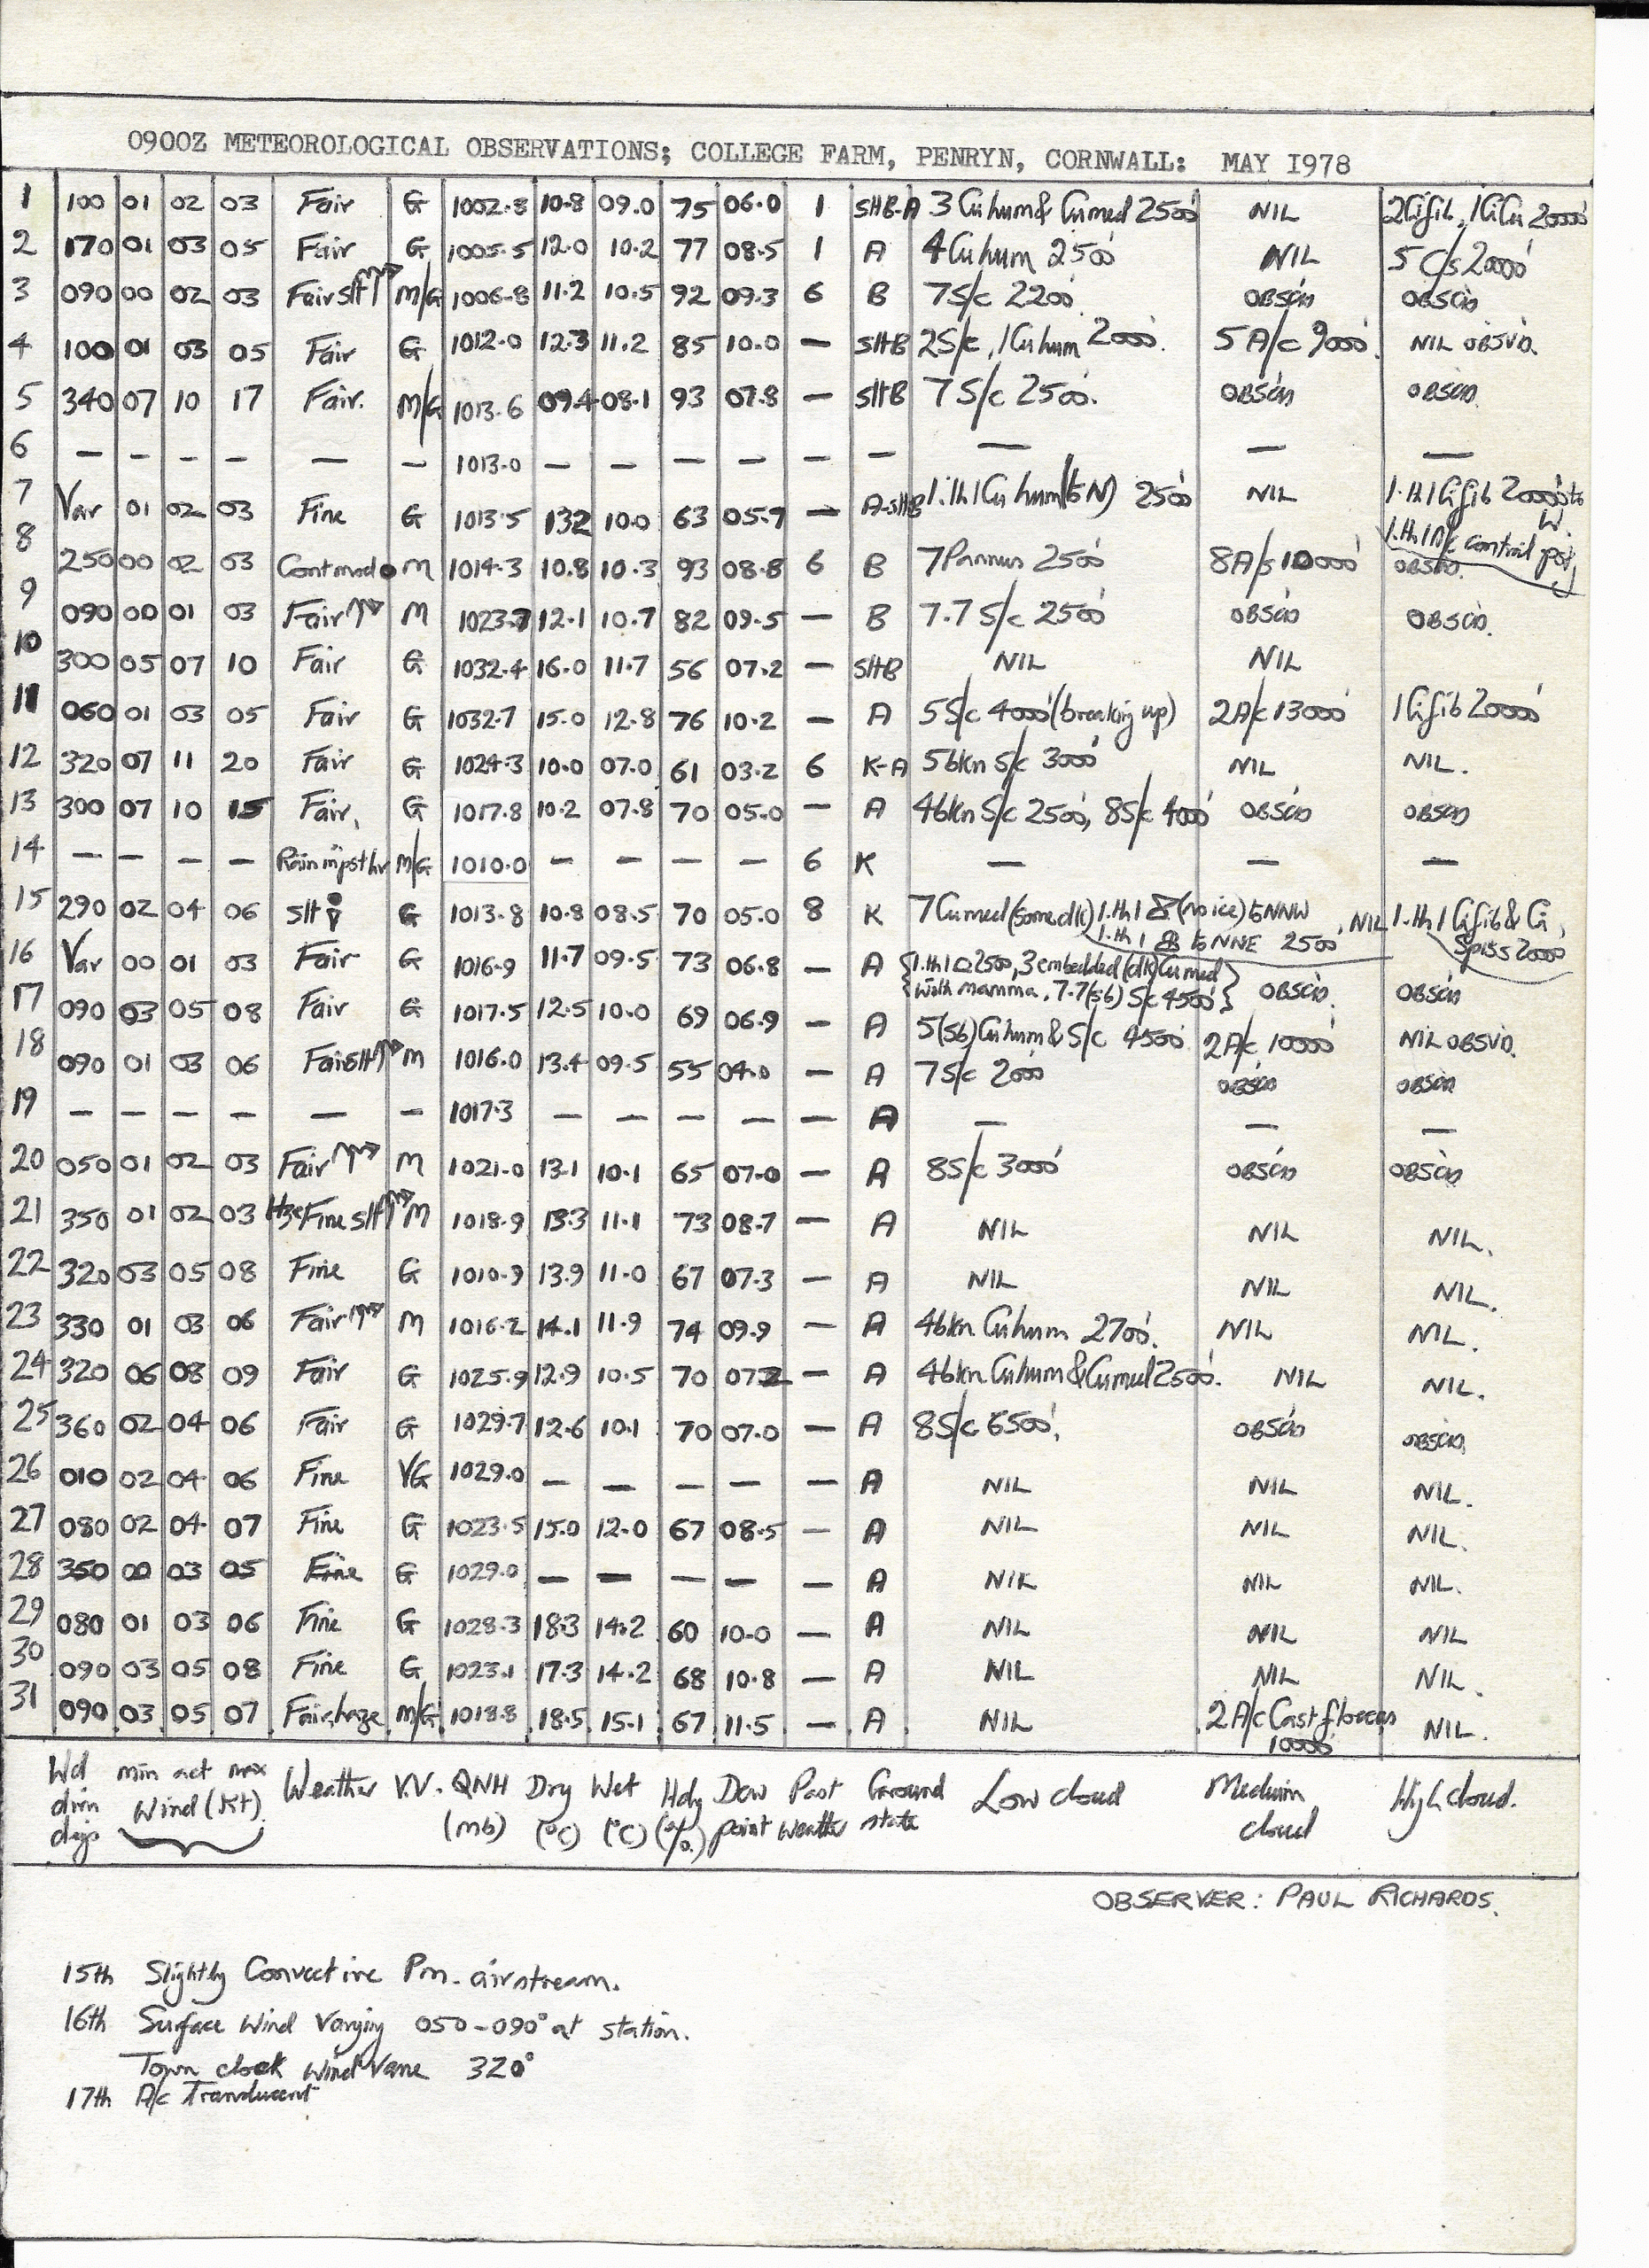 0900Z METEOROLOGICAL OBSERVATIONS; COLLEGE FARM, PENRYN, CORNWALL: MAY I978
1 100 01 02 03 Fair G 1002.8 10.8 09.0 75 06.0 1 SHB-A 3 Cu hum & Cu med 2500' NIL 2Cifib, 1CiCu 20000'
2 170 01 03 05 Fair G 1005.5 12.0 10.2 77 08.5 1 A 4 Cu hum 2500' NIL 5 C/s 20000'
3 090 00 02 03 Fair slt M/G 1006.8 11.2 10.5 92 09.3 6 B 7S/c 2200' OBSCD OBSCD
4 100 01 03 05 Fair G 1012.0 12.3 11.2 85 10.0 — SHB 2S/c, 1Cu hum 2000'. 5 A/c 9000'. NIL OBSVD.
5 340 07 10 17 Fair. M/G 1013.6 09.4 08.1 93 07.8 — SHB 7 S/c 2500'. OBSCD OBSCD.
6 — — — — — — 1013.0 — — — — — — — — —
7 Var 01 02 03 Fine G 1013.5 13.2 10.0 63 05.7 — A-SHB 1.th 1 Cu hum (to N) 2500' NIL 1.th 1 Cifib 20000' to W.
1.th 1 A/c contrail pst,
8 250 00 02 03 Cont mod ● M 1014.3 10.8 10.3 93 08.8 6 B 7 Pannus 2500' 8A/s 10000' OBSCD.
9 090 00 01 03 Fair M 1023.7 12.1 10.7 82 09.5 — B 7.7 S/c 2500' OBSCD OBSCD.
10 300 05 07 10 Fair G 1032.4 16.0 11.7 56 07.2 — SHB NIL NIL
11 060 01 03 05 Fair G 1032.7 15.0 12.8 76 10.2 — A 5S/c 4000' (breaking up) 2A/c 13000' 1 Cifib 20000'
12 320 07 11 20 Fair G 1024.3 10.0 07.0 61 03.2 6 K-A 5bkn S/c 3000' NIL NIL.
13 300 07 10 15 Fair, G 1017.8 10.2 07.8 70 05.0 — A 4bkn S/c 2500', 8S/c 4000' OBSCD OBSCD
14 — — — — Rain in pst hr M/G 1010.0 — — — — 6 K — — —
15 290 02 04 06 slt G 1013.8 10.8 08.5 70 05.0 8 K 7 Cu med (some dk) 1.th 1 (no ice) to NNW, NIL 1.th 1 Cifib & Ci,
1.th 1 to NNE 2500' Spiss 20000'
16 Var 00 01 03 Fair G 1016.9 11.7 09.5 73 06.8 — A {1.th 1 2500', 3 embedded (dk) Cu med
with mamma, 7.7 (sb) S/c 4500'} OBSCD. OBSCD
17 090 03 05 08 Fair G 1017.5 12.5 10.0 69 06.9 — A 5(sb) Cu hum & S/c 4500' 2A/c 10000' NIL OBSVD.
18 090 01 03 06 Fair slt M 1016.0 13.4 09.5 55 04.0 — A 7S/c 2000' OBSCD OBSCD
19 — — — — — — 1017.3 — — — — — A — — —
20 050 01 02 03 Fair M 1021.0 13.1 10.1 65 07.0 — A 8S/c 3000' OBSCD OBSCD
21 350 01 02 03 Hze Fine slt M 1018.9 13.3 11.1 73 08.7 — A NIL NIL NIL.
22 320 03 05 08 Fine G 1010.9 13.9 11.0 67 07.3 — A NIL NIL NIL.
23 330 01 03 06 Fair M 1016.2 14.1 11.9 74 09.9 — A 4bkn Cu hum 2700'. NIL NIL.
24 320 06 08 09 Fair G 1025.9 12.9 10.5 70 07.2 — A 4bkn Cu hum & Cu med 2500'. NIL NIL.
25 360 02 04 06 Fair G 1029.7 12.6 10.1 70 07.0 — A 8S/c 6500', OBSCD OBSCD
26 010 02 04 06 Fine VG 1029.0 — — — — — A NIL NIL NIL.
27 080 02 04 07 Fine G 1023.5 15.0 12.0 67 08.5 — A NIL NIL NIL.
28 350 00 03 05 Fine G 1029.0 — — — — — A NIL NIL NIL.
29 080 01 03 06 Fine G 1028.3 18.3 14.2 60 10.0 — A NIL NIL NIL
30 090 03 05 08 Fine G 1023.1 17.3 14.2 68 10.8 — A NIL NIL NIL.
31 090 03 05 07 Fair, haze M/G 1018.8 18.5 15.1 67 11.5 — A NIL 2 A/c Cast floccus NIL.
10000'
Wd dirn dgs min act max Wind (Kt) Weather V.V. QNH (mb) Dry (°C) Wet (°C) Hdy (%) Dew point Past weather Ground state Low cloud Medium cloud High cloud.
OBSERVER: PAUL RICHARDS.
15th Slightly Convective Pm. airstream.
16th Surface Wind Varying 050-090° at station.
Town clock wind Vane 320°
17th A/c Translucent